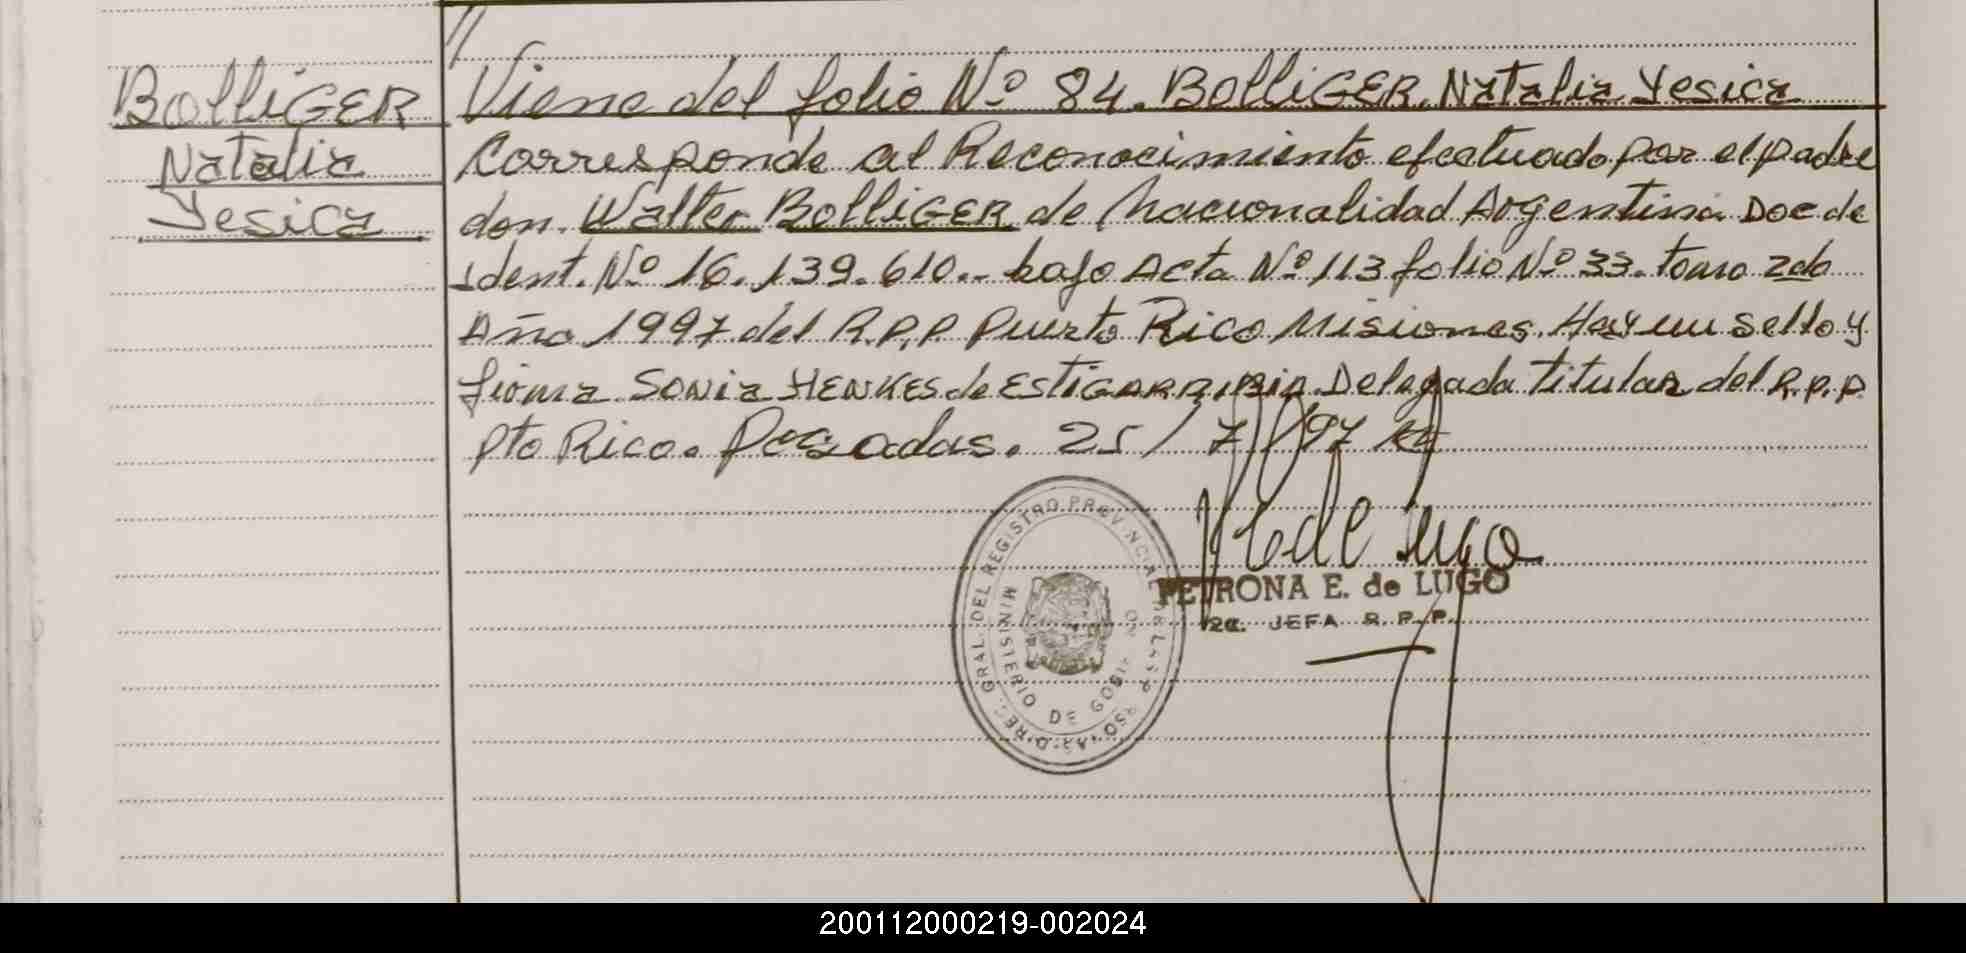 BolliGER
Natalia
Yesica
//
Viene del folio Nº 84. BolliGER, Natalia Yesica
Corresponde al Reconocimiento efectuado por el padre
don. Walter BolliGER de Nacionalidad Argentina Doc de
Ident. Nº 16.139.610.- bajo Acta Nº 113 folio Nº 33. tomo 2do
Año 1997 del R.P.P. Puerto Rico Misiones. Hay un sello y
firma Sonia HENKES de ESTIGARRIBIA Delegada titular del R.P.P
Pto Rico. Posadas. 25/7/97
GRAL. DEL REGISTRO PROVINCIAL DE LAS P RSONAS
MINISTERIO DE GOBI NO
PETRONA E. de LUGO
2a. JEFA R.P.P.
200112000219-002024